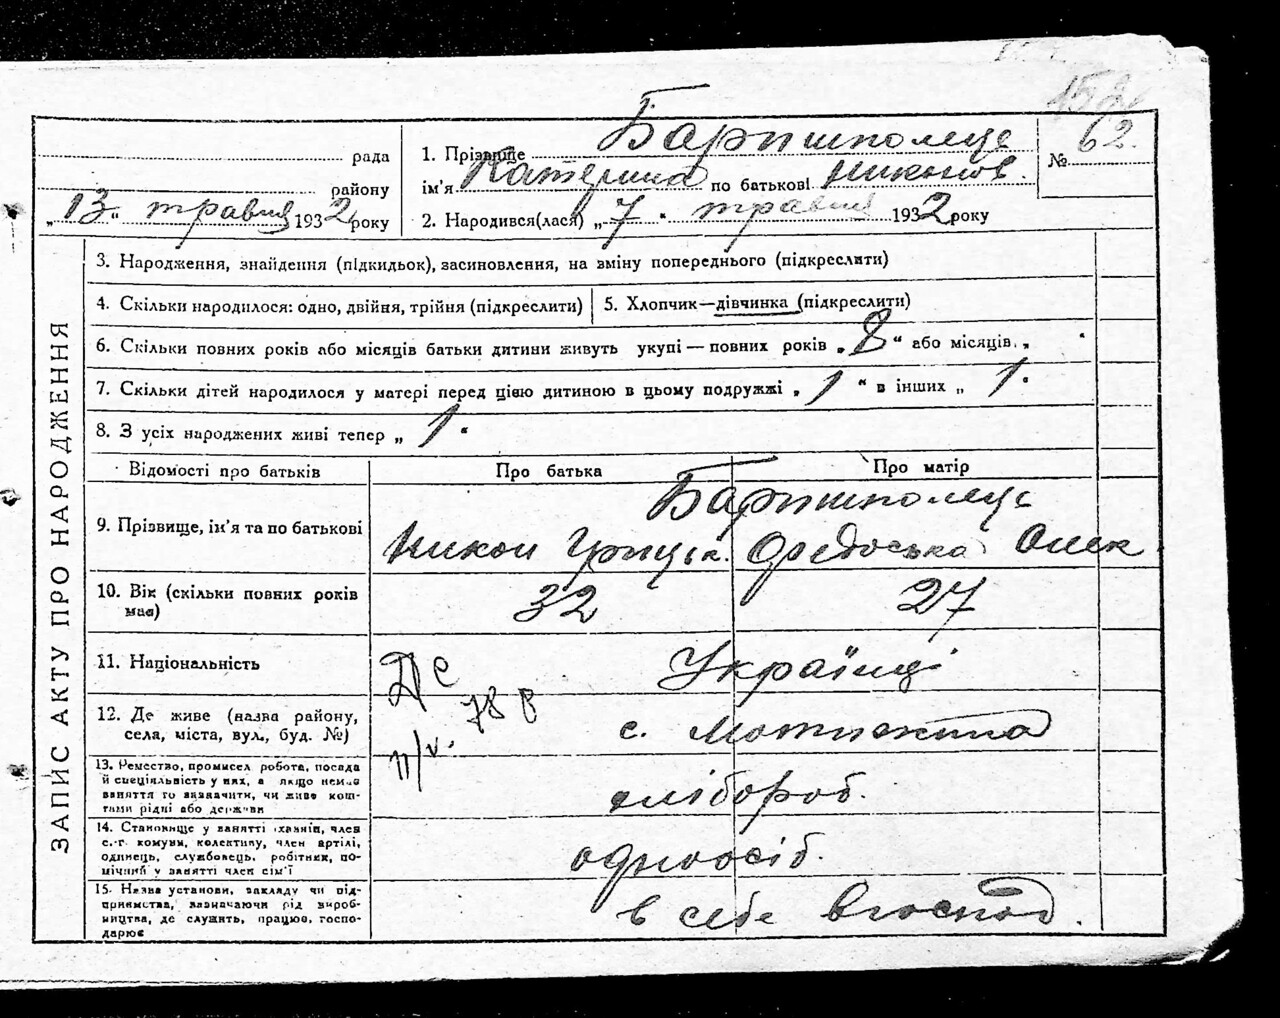 62.
рада
району
„13" травня 1932 року
1. Прізвище Баришполець
ім'я Катерина по батькові Никонов.
№
2. Народився(лася) „7" травня 1932 року
ЗАПИС АКТУ ПРО НАРОДЖЕННЯ
3. Народження, знайдення (підкидьок), засиновлення, на зміну попереднього (підкреслити)
4. Скільки народилося: одно, двійня, трійня (підкреслити)
5. Хлопчик—дівчинка (підкреслити)
6. Скільки повних років або місяців батьки дитини живуть укупі — повних років „8" або місяців „ "
7. Скільки дітей народилося у матері перед цією дитиною в цьому подружжі „1" в інших „1"
8. З усіх народжених живі тепер „1"
Відомості про батьків
Про батька
Про матір
9. Прізвище, ім'я та по батькові
Баришполець
Никон Грицьк. Федоська Олек
10. Вік (скільки повних років
має)
32
27
11. Національність
Українці
12. Де живе (назва району,
села, міста, вул., буд. №)
с. Мотижина
13. Ремество, промисел робота, посада
й спеціальність у них, а якщо нема
заняття то визначити, чи живе кош-
тами рідні або держави
хлібороб.
14. Становище у занятті хазяїн, член
с.-г. комуни, колективу, член артілі,
одинець, службовець, робітник, по-
мічний у занятті член сім'ї
одноосіб.
15. Назва установи, закладу чи під-
приємства, зазначаючи рід вироб-
ництва, де служить, працює, госпо-
дарює
в себе в господ.